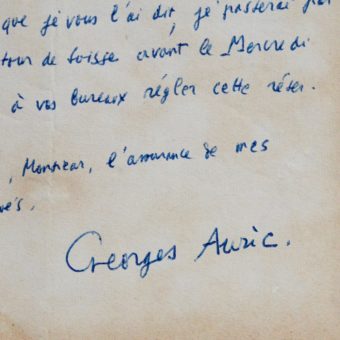 que je vous l'ai dit, je passerai par
tour de Suisse avant le Mercredi
à vos bureaux régler cette
, Monsieur, l'assurance de mes
Georges Auric.